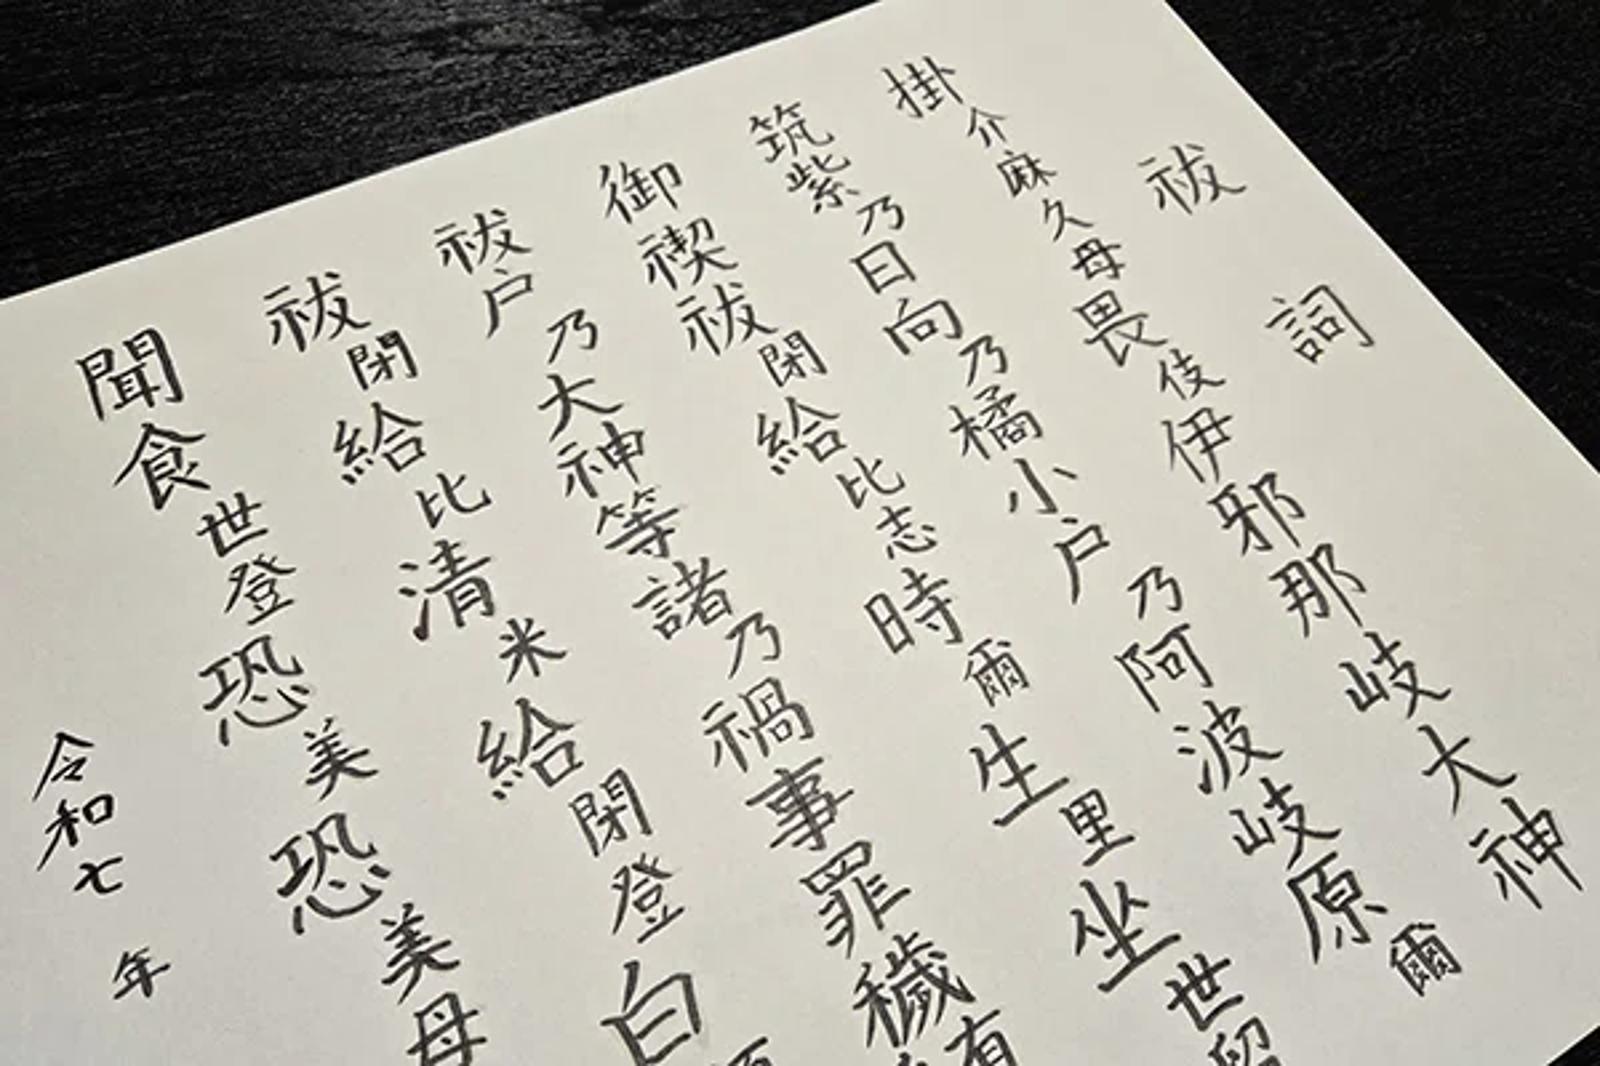 祓詞
掛介麻久母畏伎伊邪那岐大神
筑紫乃日向乃橘小戸乃阿波岐原爾
御禊祓閉給比志時爾生里坐世留
祓戸乃大神等諸乃禍事罪穢有
祓閉給比清米給閉登白
聞食世登恐美恐美母
令和七年